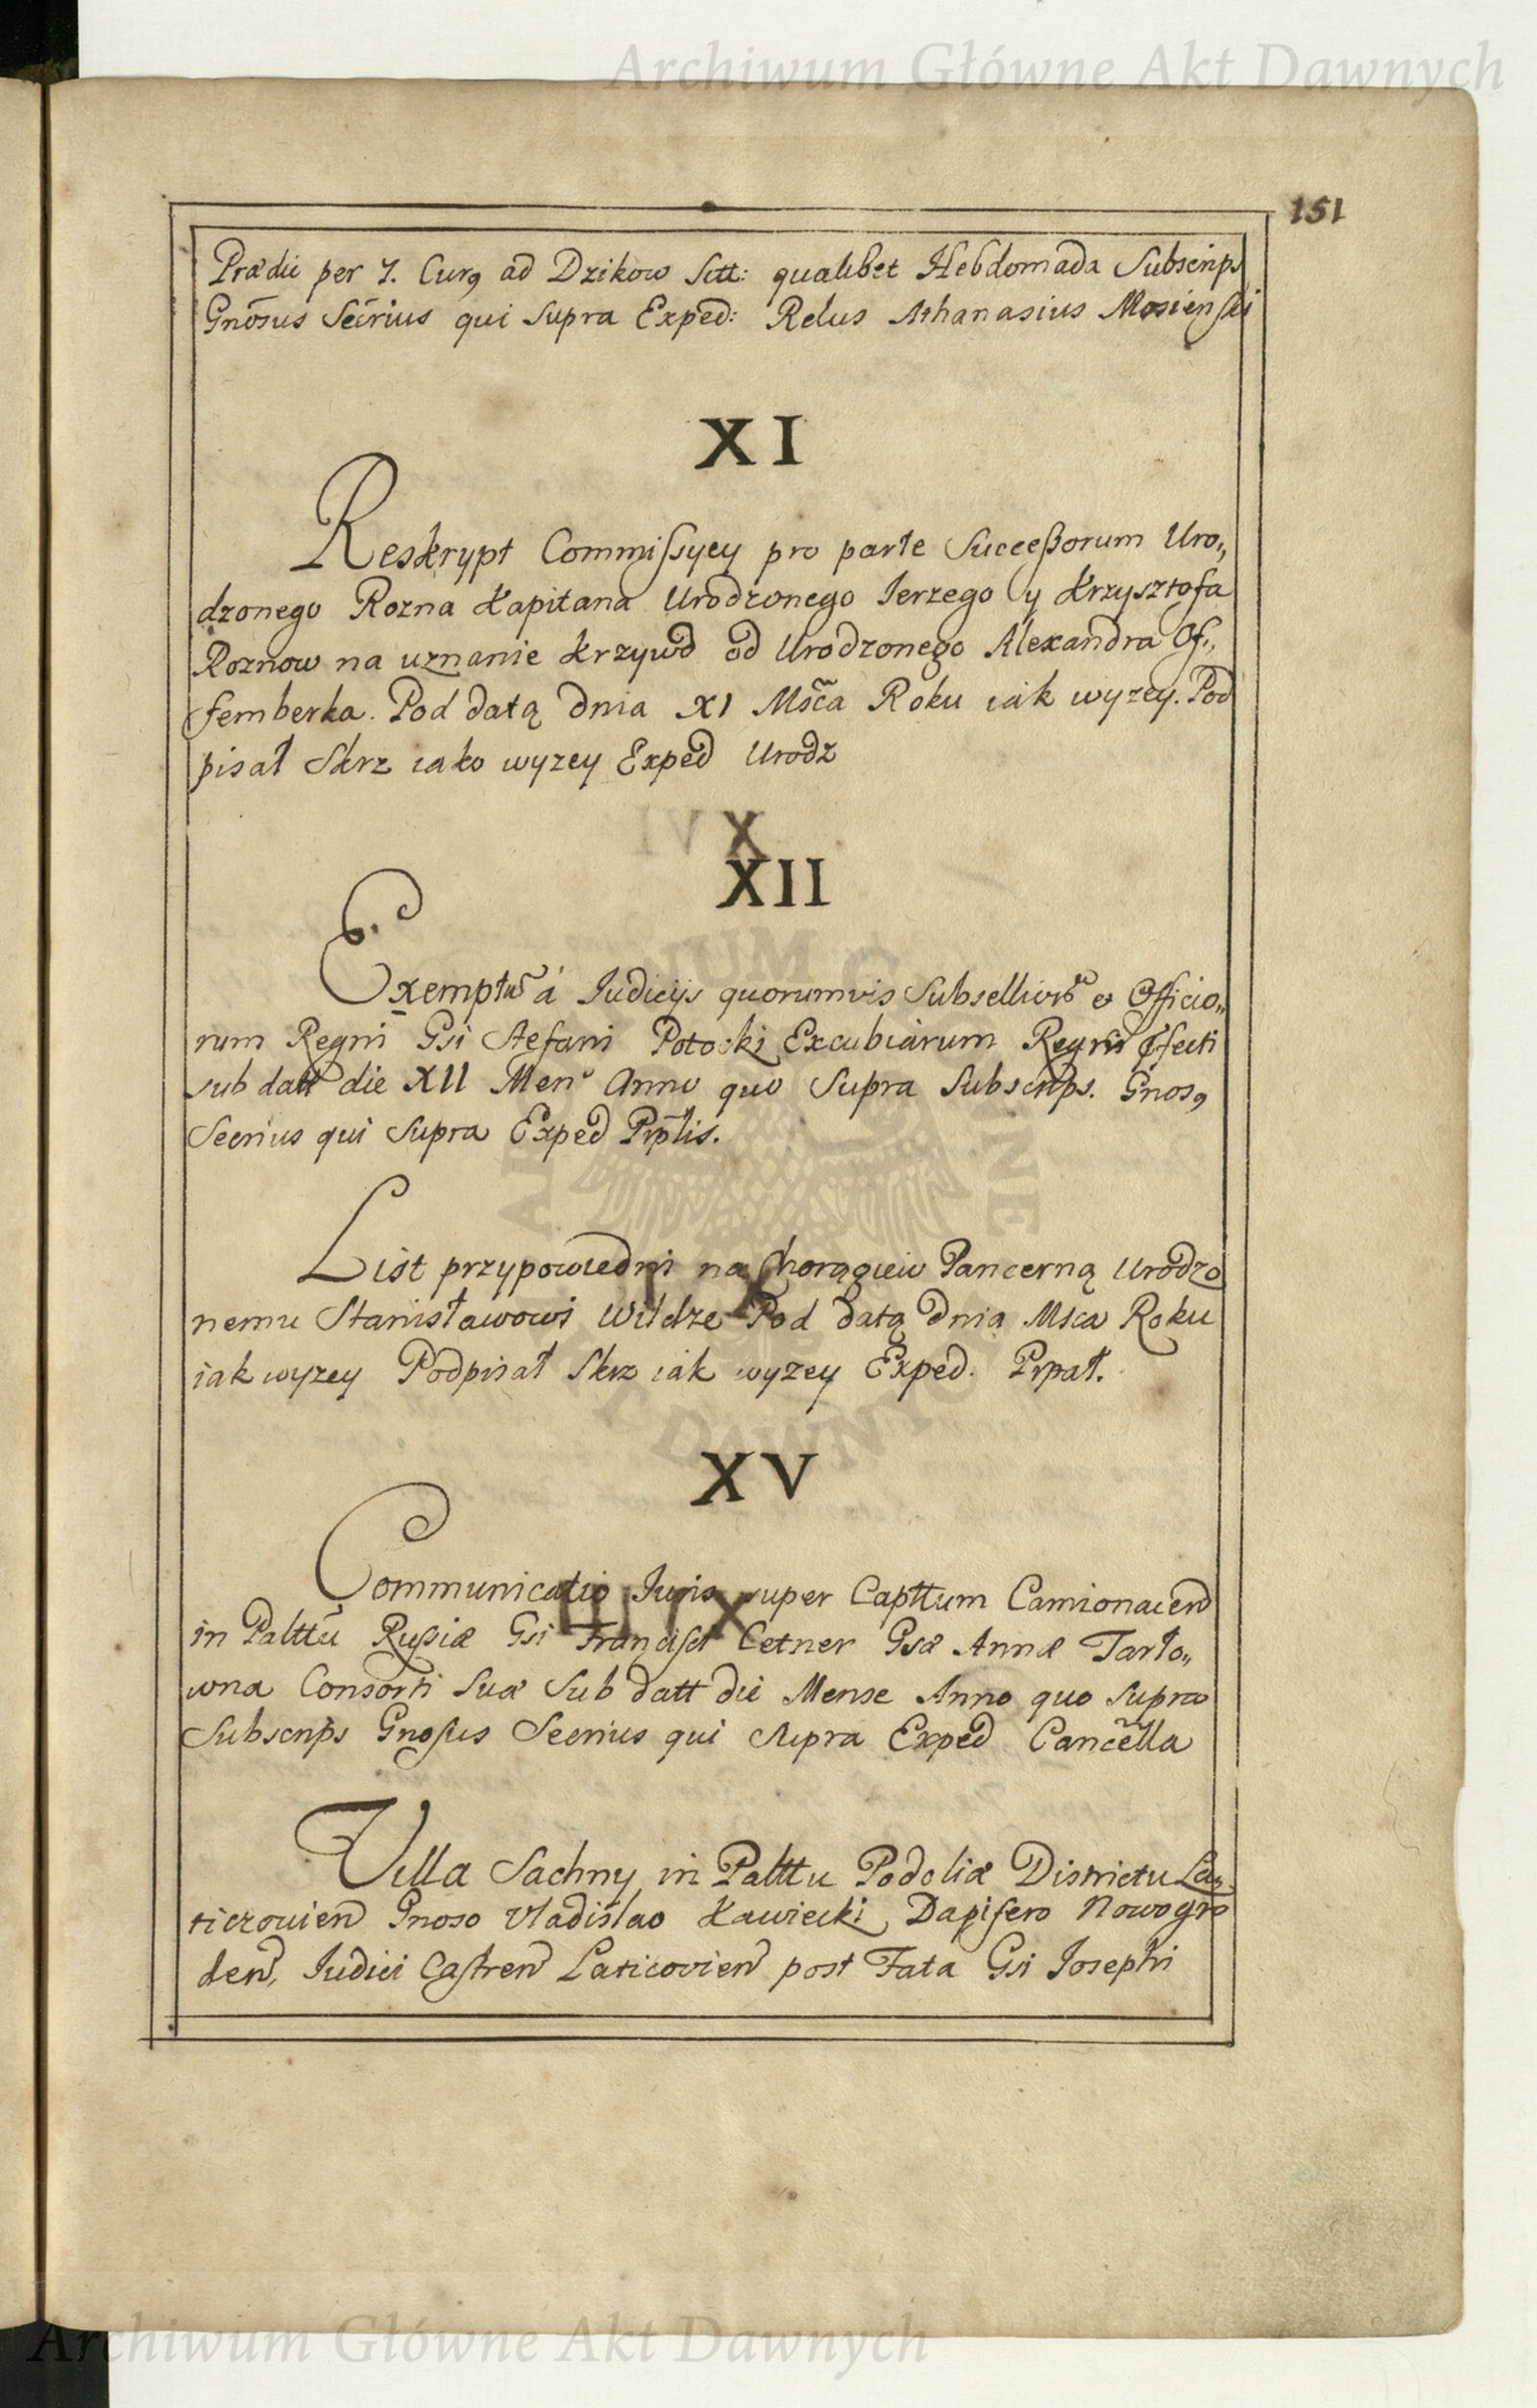 Archiwum Główne Akt Dawnych
151
Prædii per 7. Curꝯ ad Dzikow Sctt: qualibet Hebdomada Subscrips
Gnōsus Secrius qui supra Exped: Relus Athanasius Mosienski
XI
Reskrypt Commissyey pro parte Successorum Uro„
dzonego Rozna Kapitana Urodzonego Ierzego y Krzysztofa
Roznow na uznanie Krzywd od Urodzonego Alexandra Of„
femberka. Pod datą Dnia XI Msca Roku iak wyzey. Pod
pisał Skrz iako wyzey Exped Urodz
XII
Exemptus á Iudicijs quorumvis Subselliorū et Officio„
rum Regni Gsi Stefani Potocki Excubiarum Regni Pfecti
sub datt die XII Men Anno quo Supra Subscrips. Gnosꝯ
Secrius qui Supra Exped Prptlis.
List przypowiedni na Chorągiew Pancerną Urodzo
nemu Stanisławowi Wildze Pod datą Dnia Msca Roku
iak wyzey Podpisał Skrz iak wyzey Exped. Prpat.
XV
Communicatio Iuris super Capttum Camionacen
in Palttū Russiæ Gsi Francisci Cetner Gsæ Annæ Tarło„
wna Consorti Suæ Sub datt die Mense Anno quo Supra
Subscrips Gnosus Secrius qui Supra Exped Cancella
Villa Sachny in Palttu Podoliæ Districtu La„
ticzovien Gnoso Vladislao Kawiecki Dapifero Nowogro
den, Iudici Castren Laticovien post Fata Gsi Iosephi
Archiwum Główne Akt Dawnych